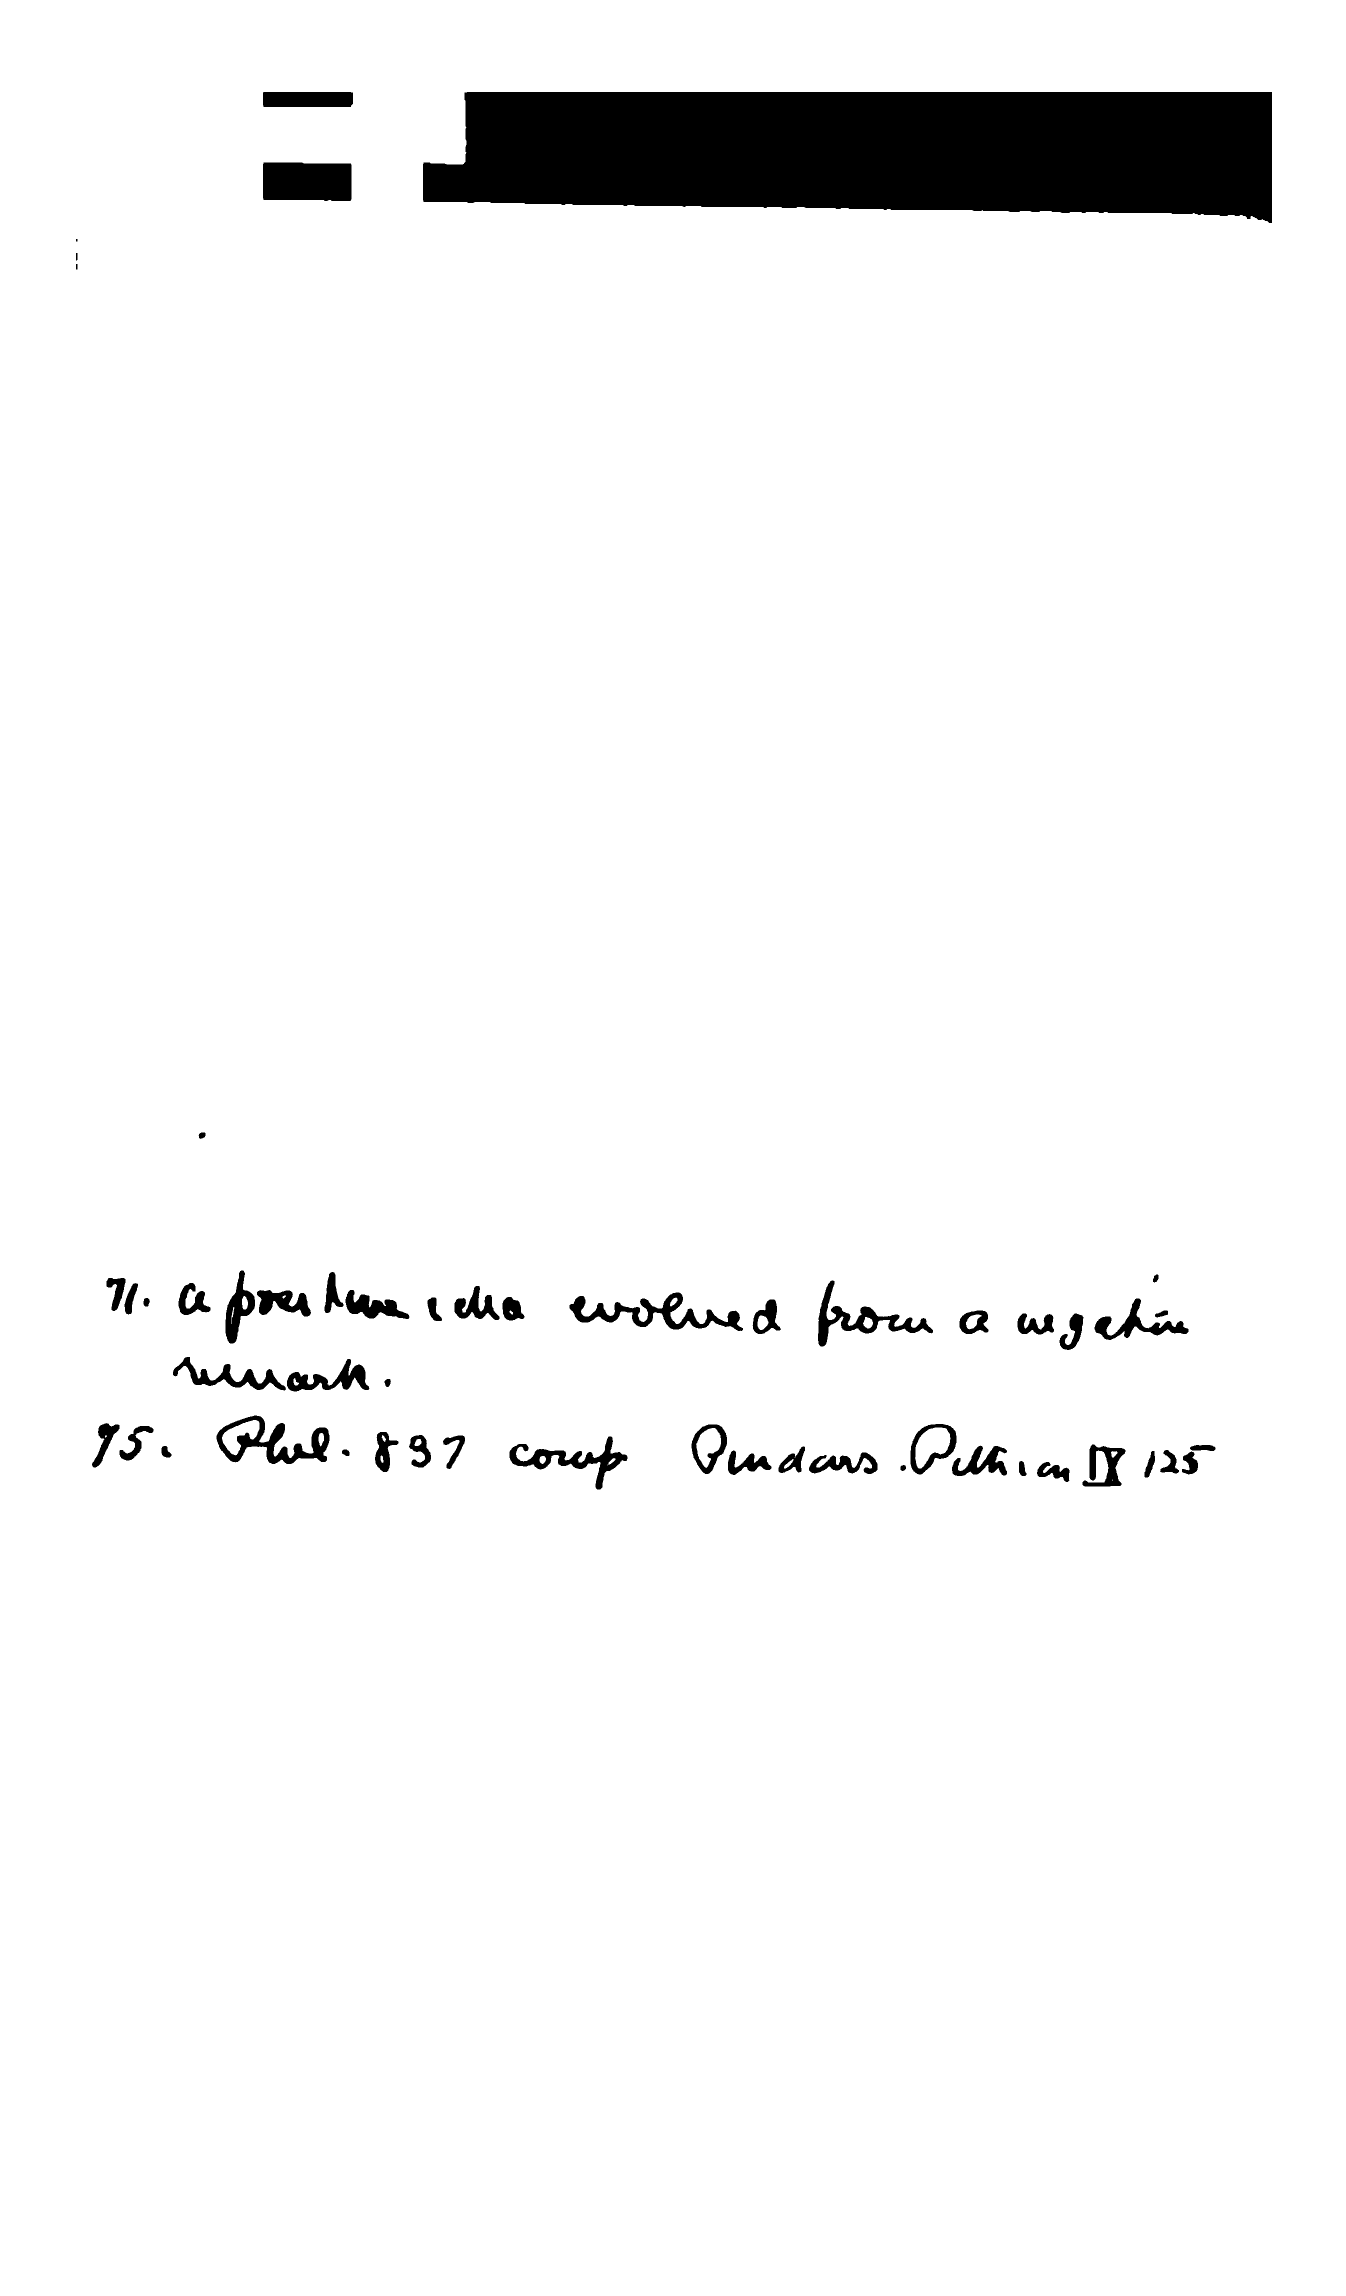 71. a positive idea evolved from a negative
remark.
75. Phil. 837 comp Pindars. Pythian IX 125